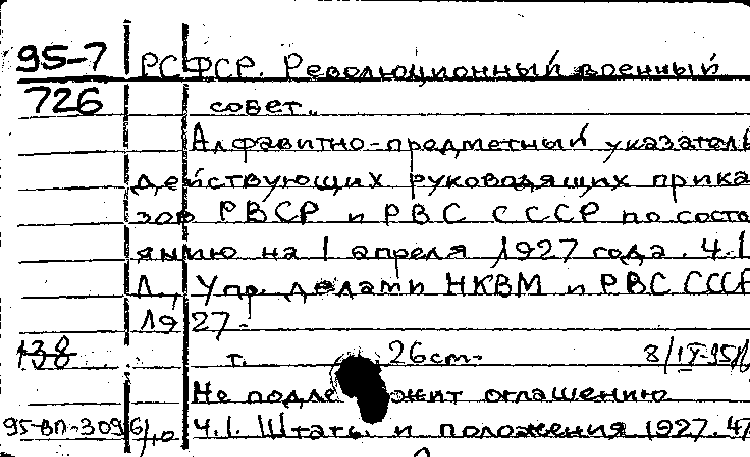 95-7 РСФСР. Революционный военный
726 совет.
Алфавитно-предметный указатель
действующих руководящих прика
зов РВСР и РВС СССР по состо
янию на 1 апреля 1927 года. Ч.1
Л., Упр. делами НКВМ и РВС СССР
1927.
138 т. 26 см.
Не подлежит оглашению
95-ВП-309 Ч.1. Штаты и положения 1927.